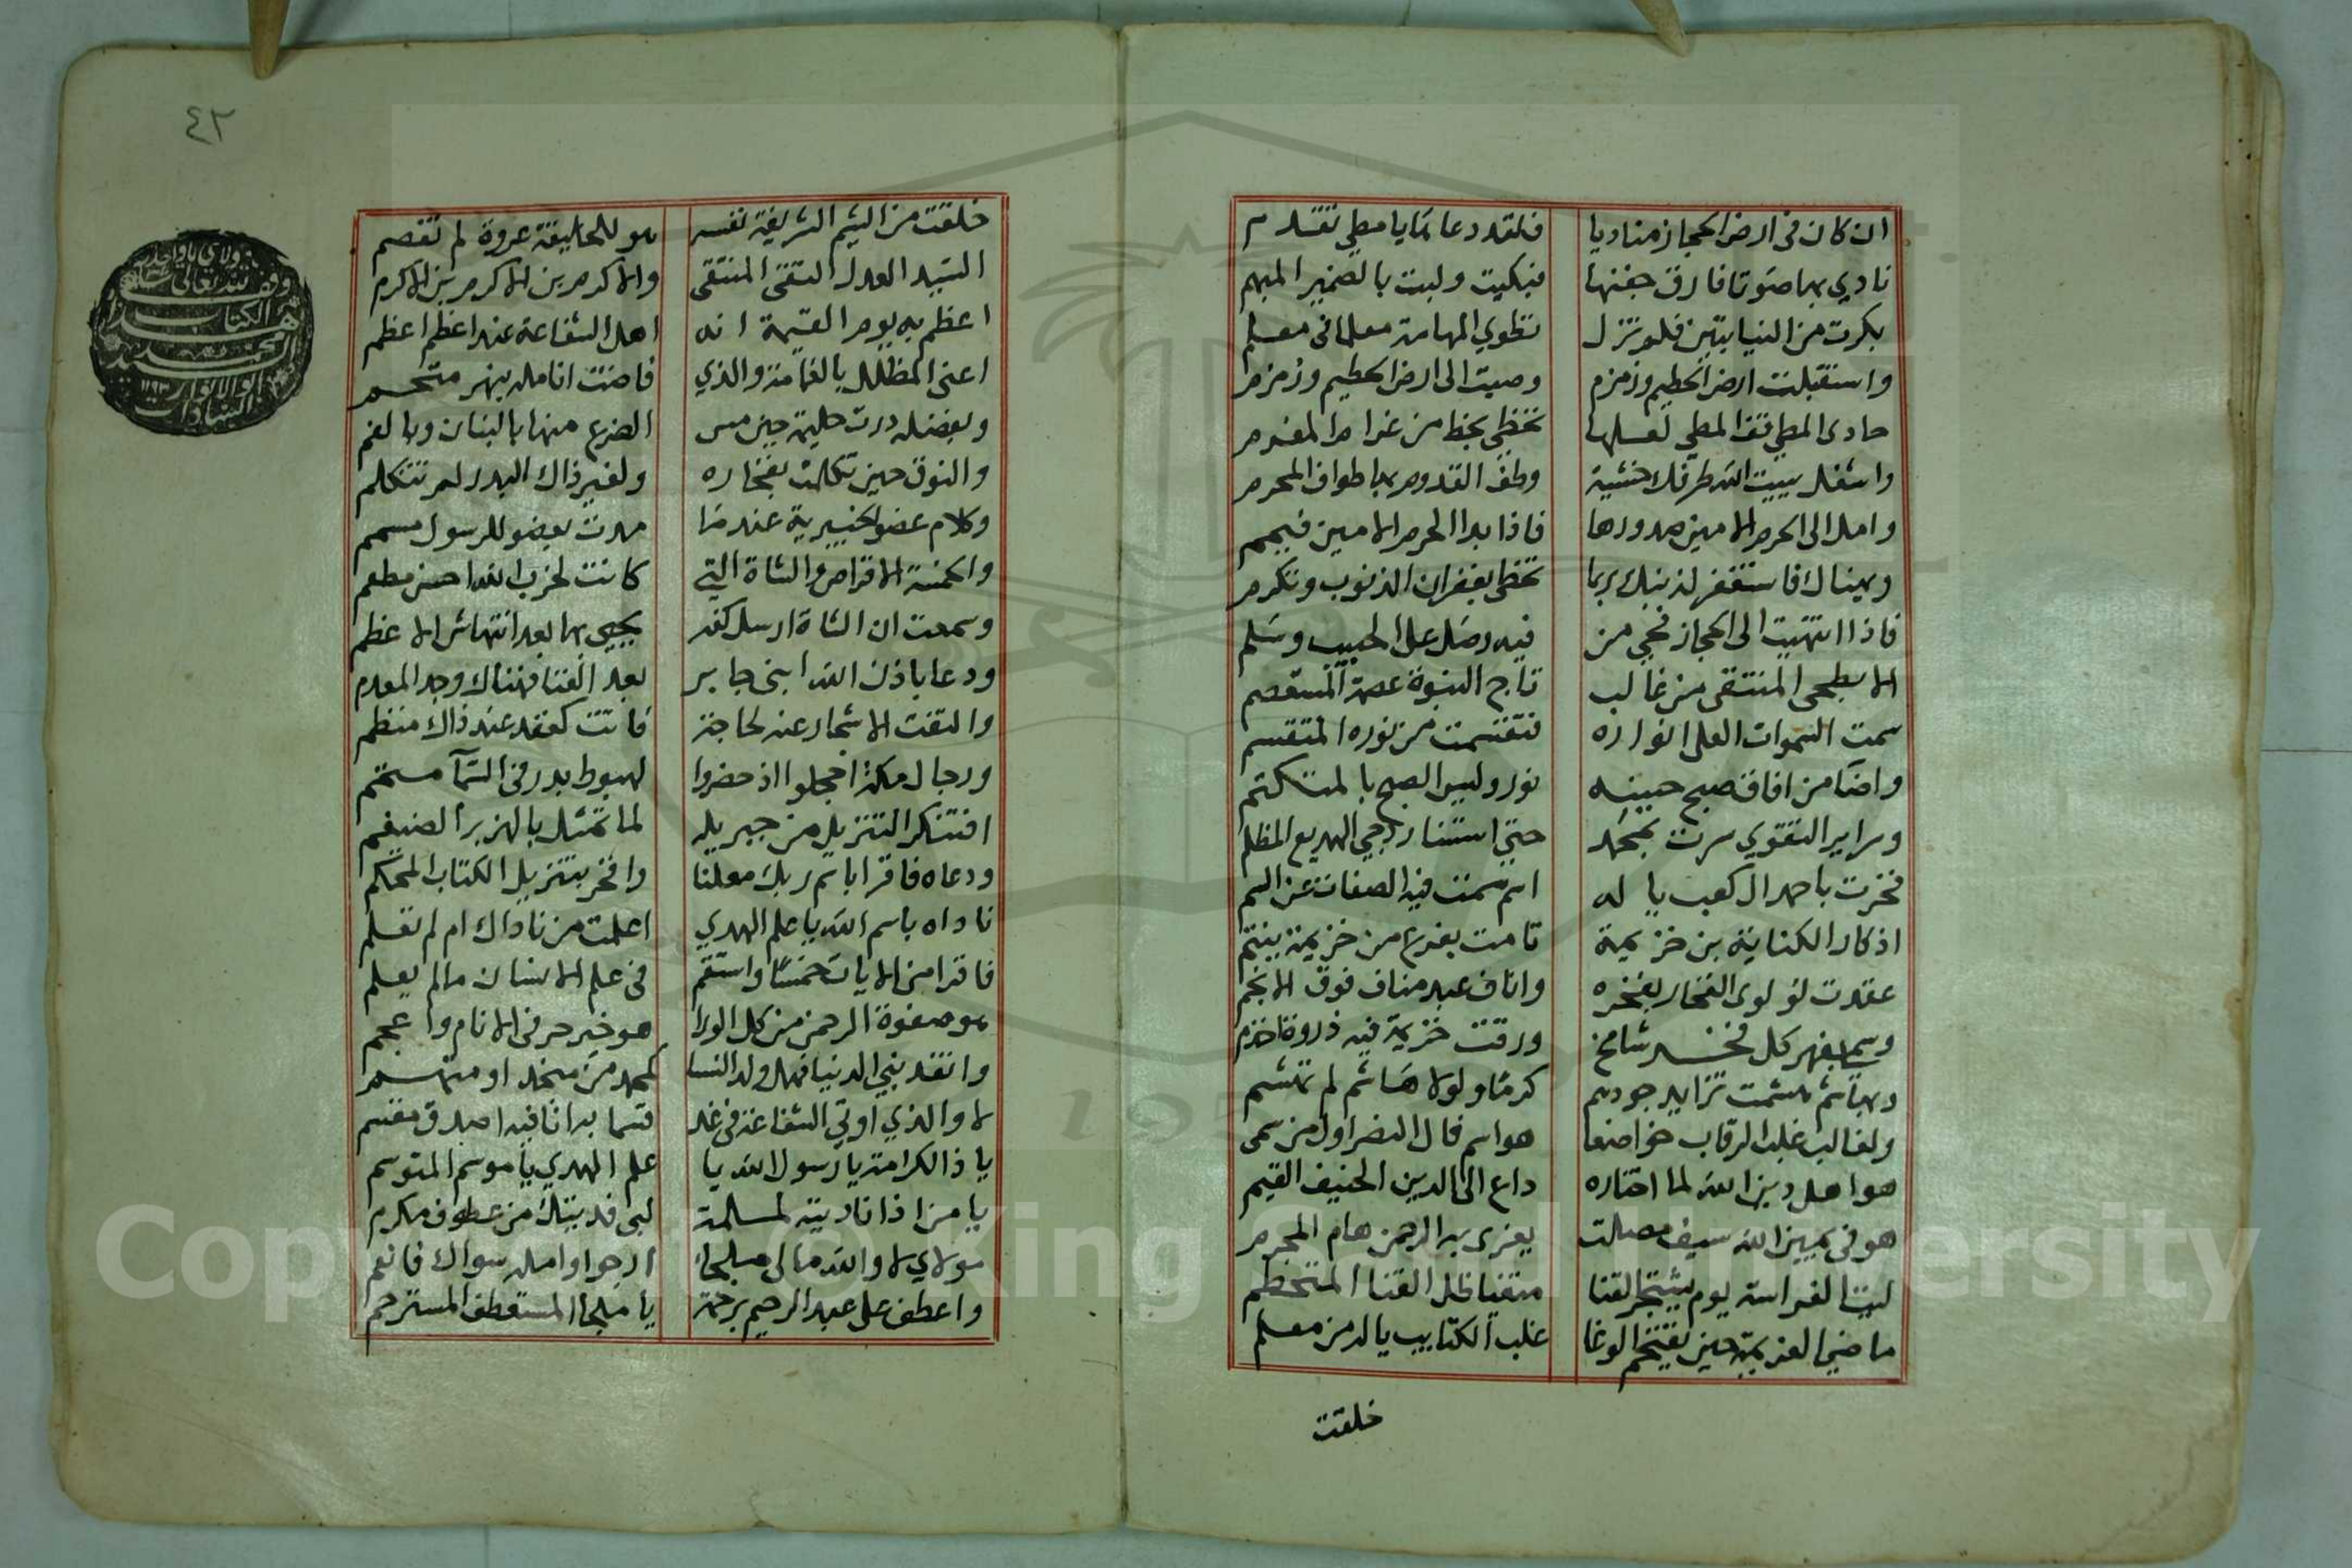 ان كان فى ارض الحجاز مناديا فلقد دعا يا مطي تقدم
نادي بها صوتا فارق جفنها فبكيت ولبت بالضمير المبهم
بكرت من النيابتين فلو تنزل تطوي المهامة معلما فى معلم
واستقبلت ارض الحطيم وزمزم وصبت الى ارض الحطيم وزمزم
حادى المطي قف المطي لعلها تحظى بحظ من غرام المغرم
واشغل ببيت الله طرفك خشية وطف القدوم بها طواف المحرم
وامل الى الحرم الامين صدورها فاذا بدا الحرم الامين فيمم
وهناك فاستغفر لذنبك ربما تحظى بغفران الذنوب وتكرم
فاذا انتهيت الى الحجاز فحي من فيه وصل على الحبيب وسلم
الابطحى المنتقى من غالب تاج النبوة عصمة المستعصم
سمت السموات العلى انواره فتقسمت من نوره المتقسم
واضا من افاق صبح جبينه نور وليس الصبح بالمتكتم
وسراير التقوي سرت بمحمد حتى استنار دجي البهيم المظلم
فخرت باحمد ال كعب يا له اسم سمت فيه الصفات عن السم
اذ كان الكنانية بن خزيمة قامت بفرع من خزيمة ينتم
عقدت لؤ لوى الفخار بفخره واناف عبد مناف فوق الانجم
وسمى بفهر كل فخر شامخ ورقت خزيمة فيه ذروة اخزم
وبهاشم هشمت ترايد جودهم كرما ولولا هاشم لم تهشم
ولغالب غلب الرقاب خواضعا هو اسم قال النضر اول من سمى
هو اهل دين الله لما اختاره داع الى الدين الحنيف القيم
هو فى يمين الله سيف مصلت يفرى به الرحمن هام المجرم
ليث الفراسة يوم يشتجر القنا متفيا ظل القنا المتحطم
ماضي العزيمة حين يقتحم الوغا غلب الكتايب يالد من معلم
خلقت
٤٢
خلقت من الشيم الشريفة نفسه هو للخليقة عروة لم تفصم
السيد العدل التقى المنتقى والاكرم بن الاكرم بن الاكرم
اعظم به يوم القيمة انه اهل الشفاعة عند اعظم اعظم
اعنى المظلل بالغمامة والذي فاضت انامله بنهر
وبفضله درت حليمة حين مس الضرع منها بالبنان وبالفم
والنوق حين تكلمت بفخاره ولغير ذاك البدر لم تتكلم
وكلام عضو الخيبرية عندما مدت بعضو للرسول مسمم
والخمسة الاقراص والشاة التي كانت لحزب الله احسن مطعم
وسمعت ان الشاة ارسل كفه يحيى بها بعد انتهاش الاعظم
ودعا باذن الله ابنى جابر بعد الفنا فهناك وجد المعدم
والتفت الاشجار عند لحاجة فاتت كعقد عند ذاك منظم
ورجال مكة اخجلوا اذ حضروا لهبوط بدر فى السمآ متمم
افتنكر التنزيل من جبريله لما تمثل بالهزبر الضيغم
ودعاه فاقرا باسم ربك معلنا وافخر بتنزيل الكتاب المحكم
ناداه باسم الله يا علم الهدي اعلمت من ناداك ام لم تعلم
فاقرا من الايات خمسا واستقم فى علم الانسان مالم يعلم
هو صفوة الرحمن من كل الورا هو خير حر فى الانام واعجم
وانقد بني الدنيا فهل ولد النسا كمحمد من منجد او متهم
لا والذي اوتي الشفاعة فى غد قسما برا فيه اصدق مقسم
يا ذا الكرامة يا رسول الله يا علم الهدي يا موسم المتوسم
يا من اذا ناديته لملمة لبى فديتك من عطوف مكرم
مولاي لا والله مالى ملجا ارجو او امله سواك فانعم
واعطف على عبد الرحيم برحمة يا ملجا المستعطف المسترحم
وقف لله تعالى
هذا الكتاب